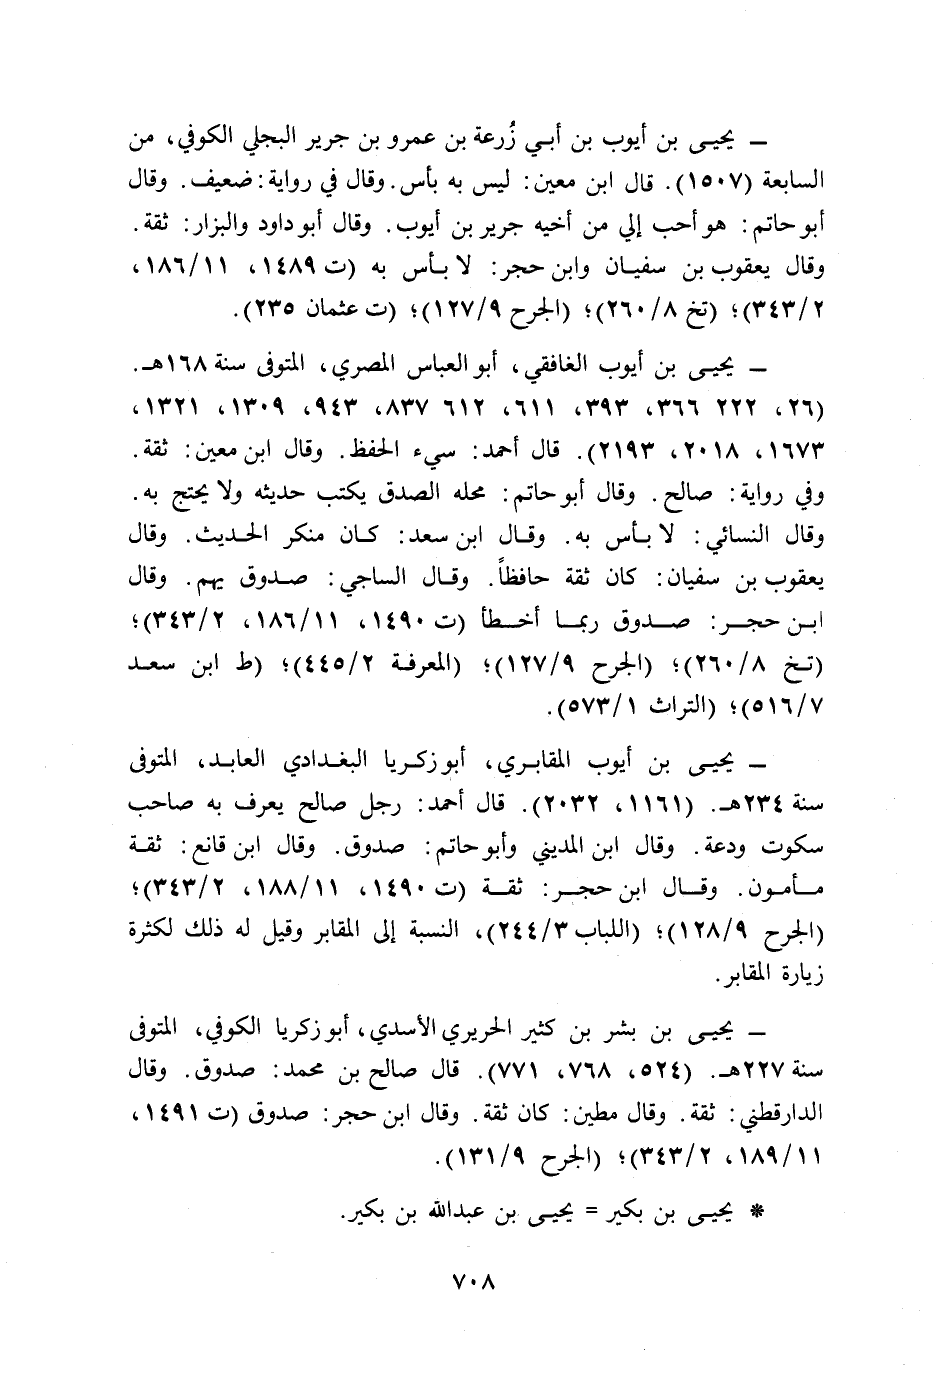 ـ يحيى بن أيوب بن أبي زُرعة بن عمرو بن جرير البجلي الكوفي، من
السابعة (١٥٠٧). قال ابن معين: ليس به بأس. وقال في رواية: ضعيف. وقال
أبو حاتم: هو أحب إلي من أخيه جرير بن أيوب. وقال أبو داود والبزار: ثقة.
وقال يعقوب بن سفيان وابن حجر: لا بأس به (ت ١٤٨٩، ١٨٦/١١،
٣٤٣/٢)؛ (تخ ٢٦٠/٨)؛ (الجرح ١٢٧/٩)؛ (ت عثمان ٢٣٥).
ـ يحيى بن أيوب الغافقي، أبو العباس المصري، المتوفى سنة ١٦٨هـ.
(٢٦، ٢٢٢ ٣٦٦، ٣٩٣، ٦١١، ٦١٢ ٨٣٧، ٩٤٣، ١٣٠٩، ١٣٢١،
١٦٧٣، ٢٠١٨، ٢١٩٣). قال أحمد: سيء الحفظ. وقال ابن معين: ثقة.
وفي رواية: صالح. وقال أبو حاتم: محله الصدق يكتب حديثه ولا يحتج به.
وقال النسائي: لا بأس به. وقال ابن سعد: كان منكر الحديث. وقال
يعقوب بن سفيان: كان ثقة حافظاً. وقال الساجي: صدوق يهم. وقال
ابن حجر: صدوق ربما أخطأ (ت ١٤٩٠، ١٨٦/١١، ٣٤٣/٢)؛
(تخ ٢٦٠/٨)؛ (الجرح ١٢٧/٩)؛ (المعرفة ٤٤٥/٢)؛ (ط ابن سعد
٥١٦/٧)؛ (التراث ٥٧٣/١).
ـ يحيى بن أيوب المقابري، أبو زكريا البغدادي العابد، المتوفى
سنة ٢٣٤هـ. (١١٦١، ٢٠٣٢). قال أحمد: رجل صالح يعرف به صاحب
سكوت ودعة. وقال ابن المديني وأبو حاتم: صدوق. وقال ابن قانع: ثقة
مأمون. وقال ابن حجر: ثقة (ت ١٤٩٠، ١٨٨/١١، ٣٤٣/٢)؛
(الجرح ١٢٨/٩)؛ (اللباب ٢٤٤/٣)، النسبة إلى المقابر وقيل له ذلك لكثرة
زيارة المقابر.
ـ يحيى بن بشر بن كثير الحريري الأسدي، أبو زكريا الكوفي، المتوفى
سنة ٢٢٧هـ. (٥٢٤، ٧٦٨، ٧٧١). قال صالح بن محمد: صدوق. وقال
الدارقطني: ثقة. وقال مطين: كان ثقة. وقال ابن حجر: صدوق (ت ١٤٩١،
١٨٩/١١، ٣٤٣/٢)؛ (الجرح ١٣١/٩).
* يحيى بن بكير = يحيى بن عبدالله بن بكير.
٧٠٨